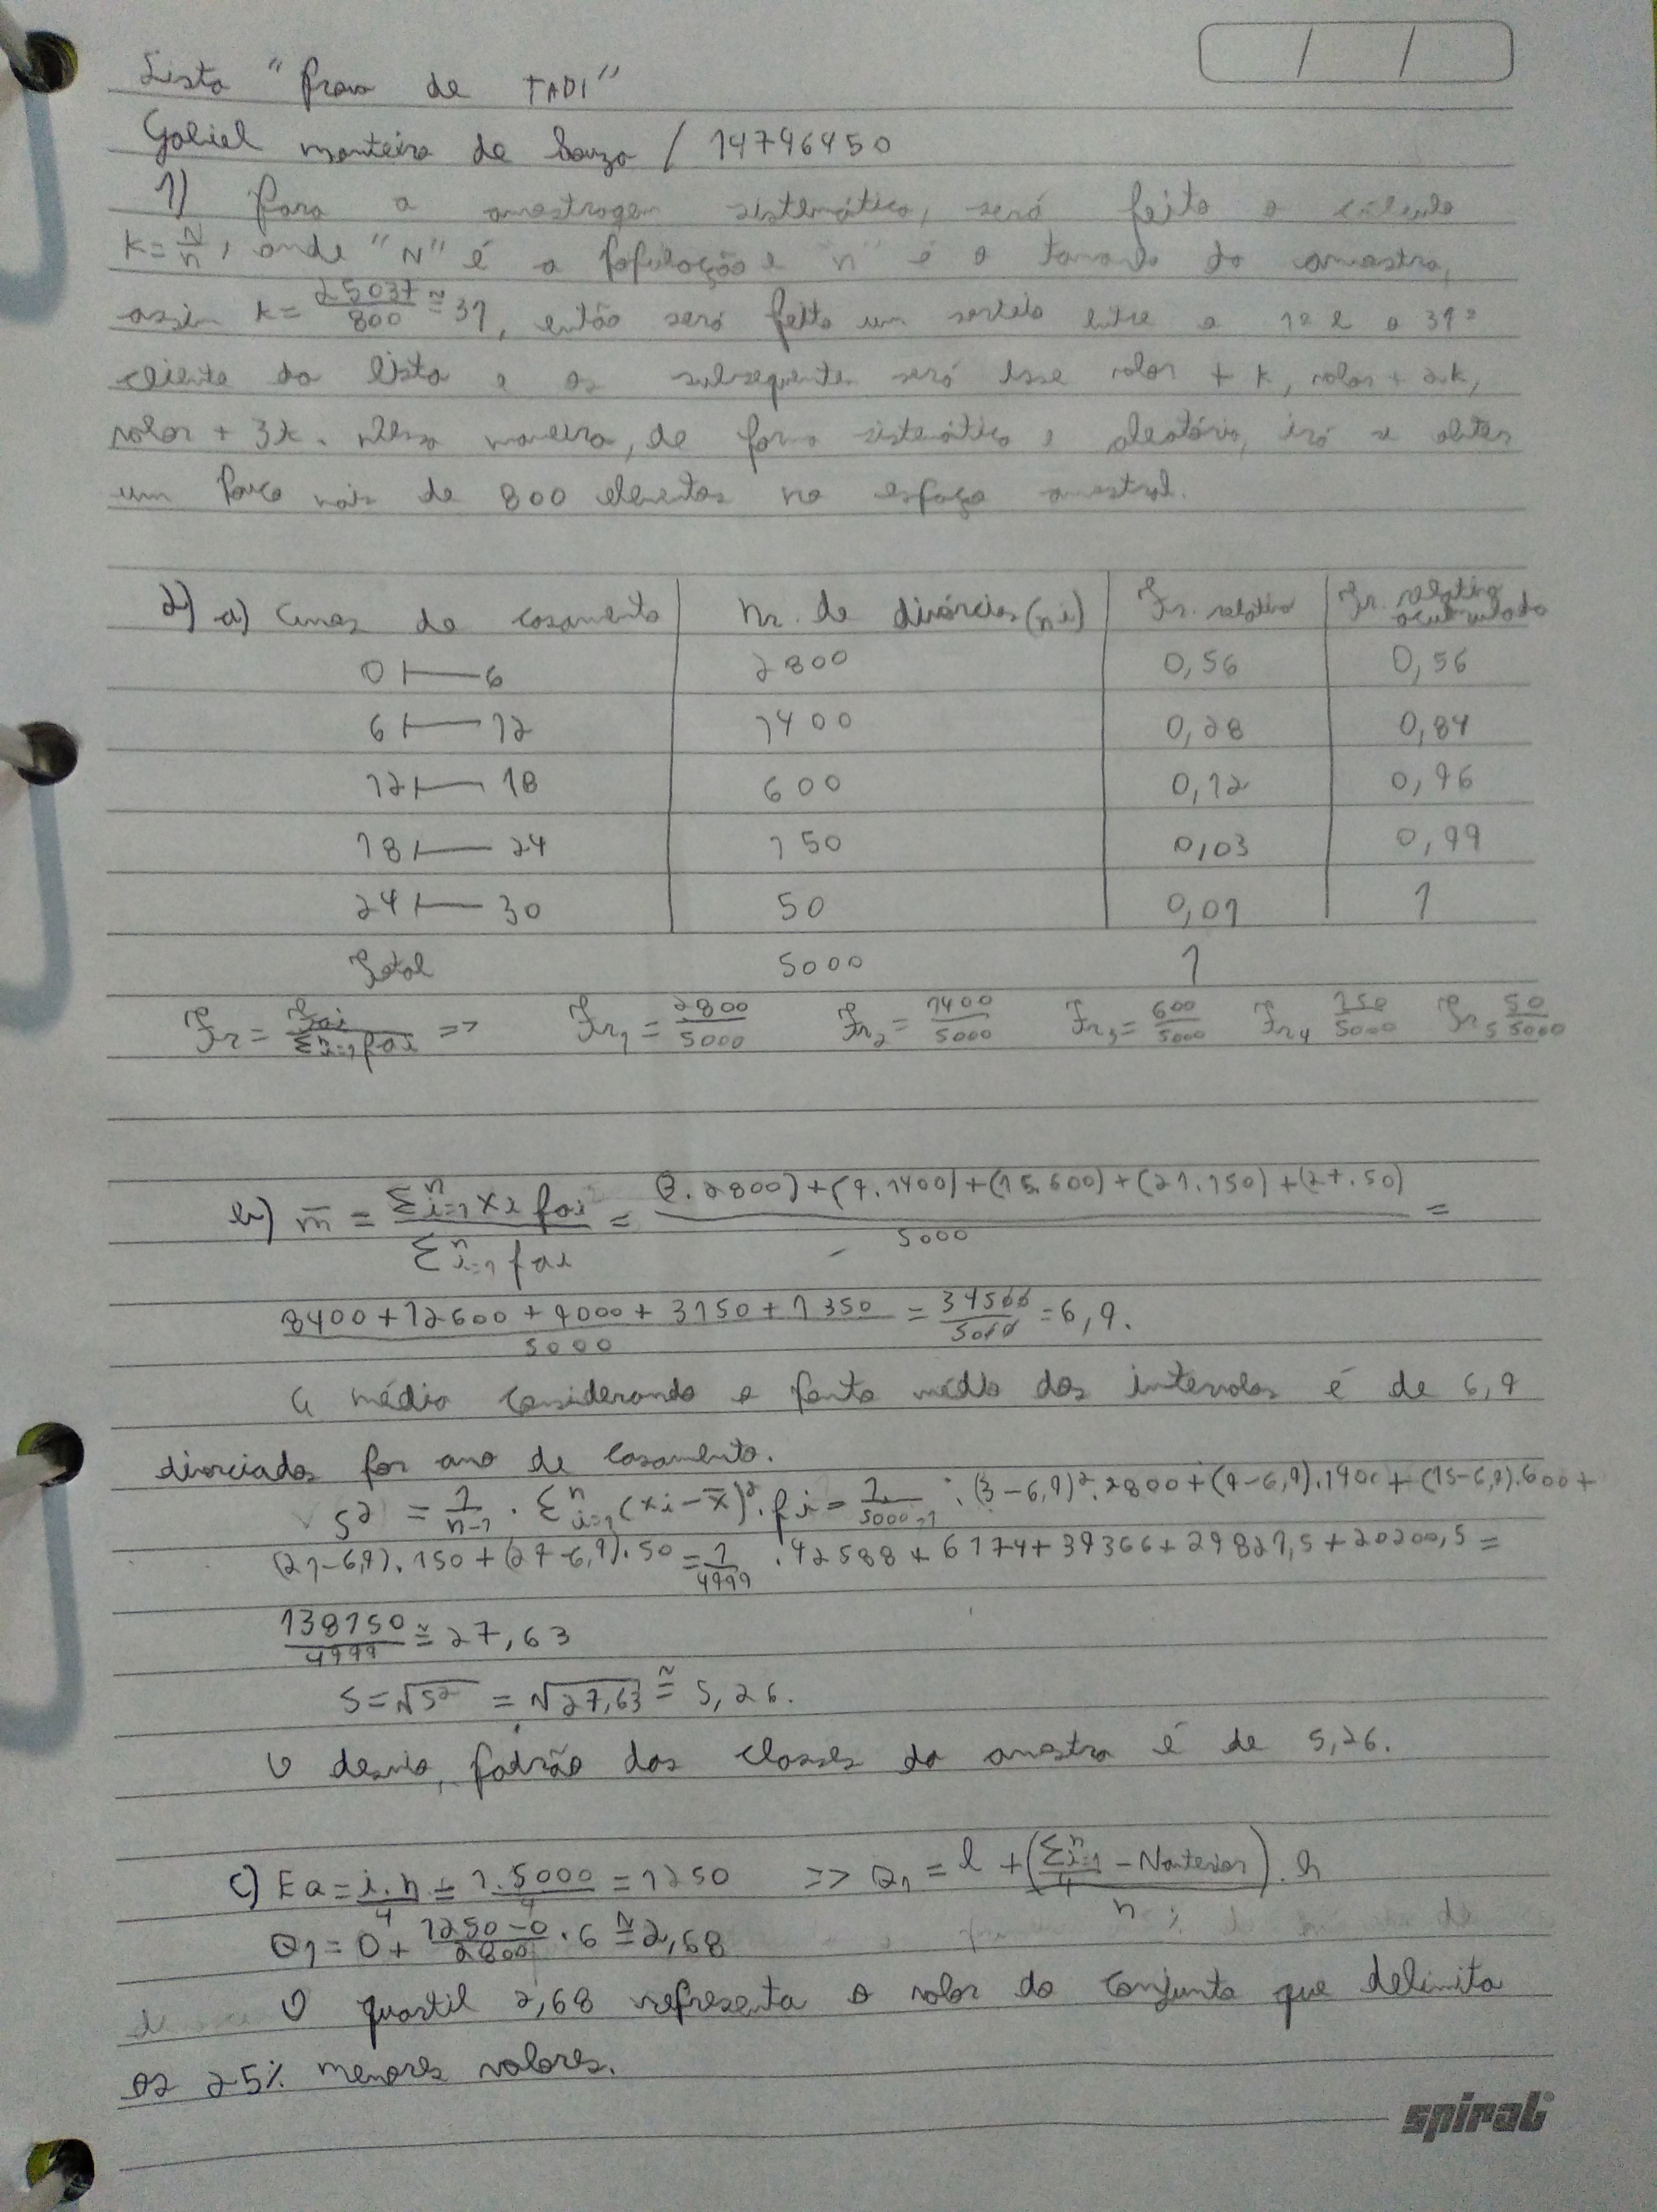 Lista "Prova de TADI"
Gabriel monteiro de Souza / 14746450
1) Para a amostragem sistemática, será feito o cálculo
K = N/n, onde "N" é a população e "n" é o tamanho da amostra,
assim K = 25037/800 ≅ 31, então será feito um sorteio entre o 1º e o 31º
cliente da lista e os subsequentes será esse valor + K, valor + 2K,
valor + 3K. Dessa maneira, de forma sistemática e aleatória, irá se obter
um pouco mais de 800 elementos no espaço amostral.
2) a) Anos de casamento | Nr. de divórcios (ni) | Fr. relativa | Fr. relativa acumulada
0 ⊢— 6 | 2800 | 0,56 | 0,56
6 ⊢— 12 | 1400 | 0,28 | 0,84
12 ⊢— 18 | 600 | 0,12 | 0,96
18 ⊢— 24 | 150 | 0,03 | 0,99
24 ⊢— 30 | 50 | 0,01 | 1
Total 5000 1
Fr = fai/Σⁿi=1 fai => Fr1 = 2800/5000 Fr2 = 1400/5000 Fr3 = 600/5000 Fr4 150/5000 Fr5 50/5000
b) m̄ = Σⁿi=1 xi fai / Σⁿi=1 fai = (3.2800)+(9.1400)+(15.600)+(21.150)+(27.50) / 5000 =
8400+12600+9000+3150+1350 / 5000 = 34500/5000 = 6,9.
A média considerando o ponto médio dos intervalos é de 6,9
divorciados por ano de casamento.
S² = 1/n-1 . Σⁿi=1 (xi - x̄)². fi = 1/5000-1 . (3-6,9)².2800+(9-6,9).1400+(15-6,9).600+
(21-6,9).150+(27-6,9).50 = 1/4999 . 42588+6174+39366+29821,5+20200,5 =
138150/4999 ≅ 27,63
S = √S² = √27,63 ≅ 5,26.
O desvio padrão das classes da amostra é de 5,26.
c) Ea = i.n/4 = 1.5000/4 = 1250 => Q1 = l + (Σⁿi=1/4 - Nanterior)/n . h
Q1 = 0 + 1250-0/2800 . 6 ≅ 2,68
O quartil 2,68 representa o valor do conjunto que delimita
os 25% menores valores.
spiral